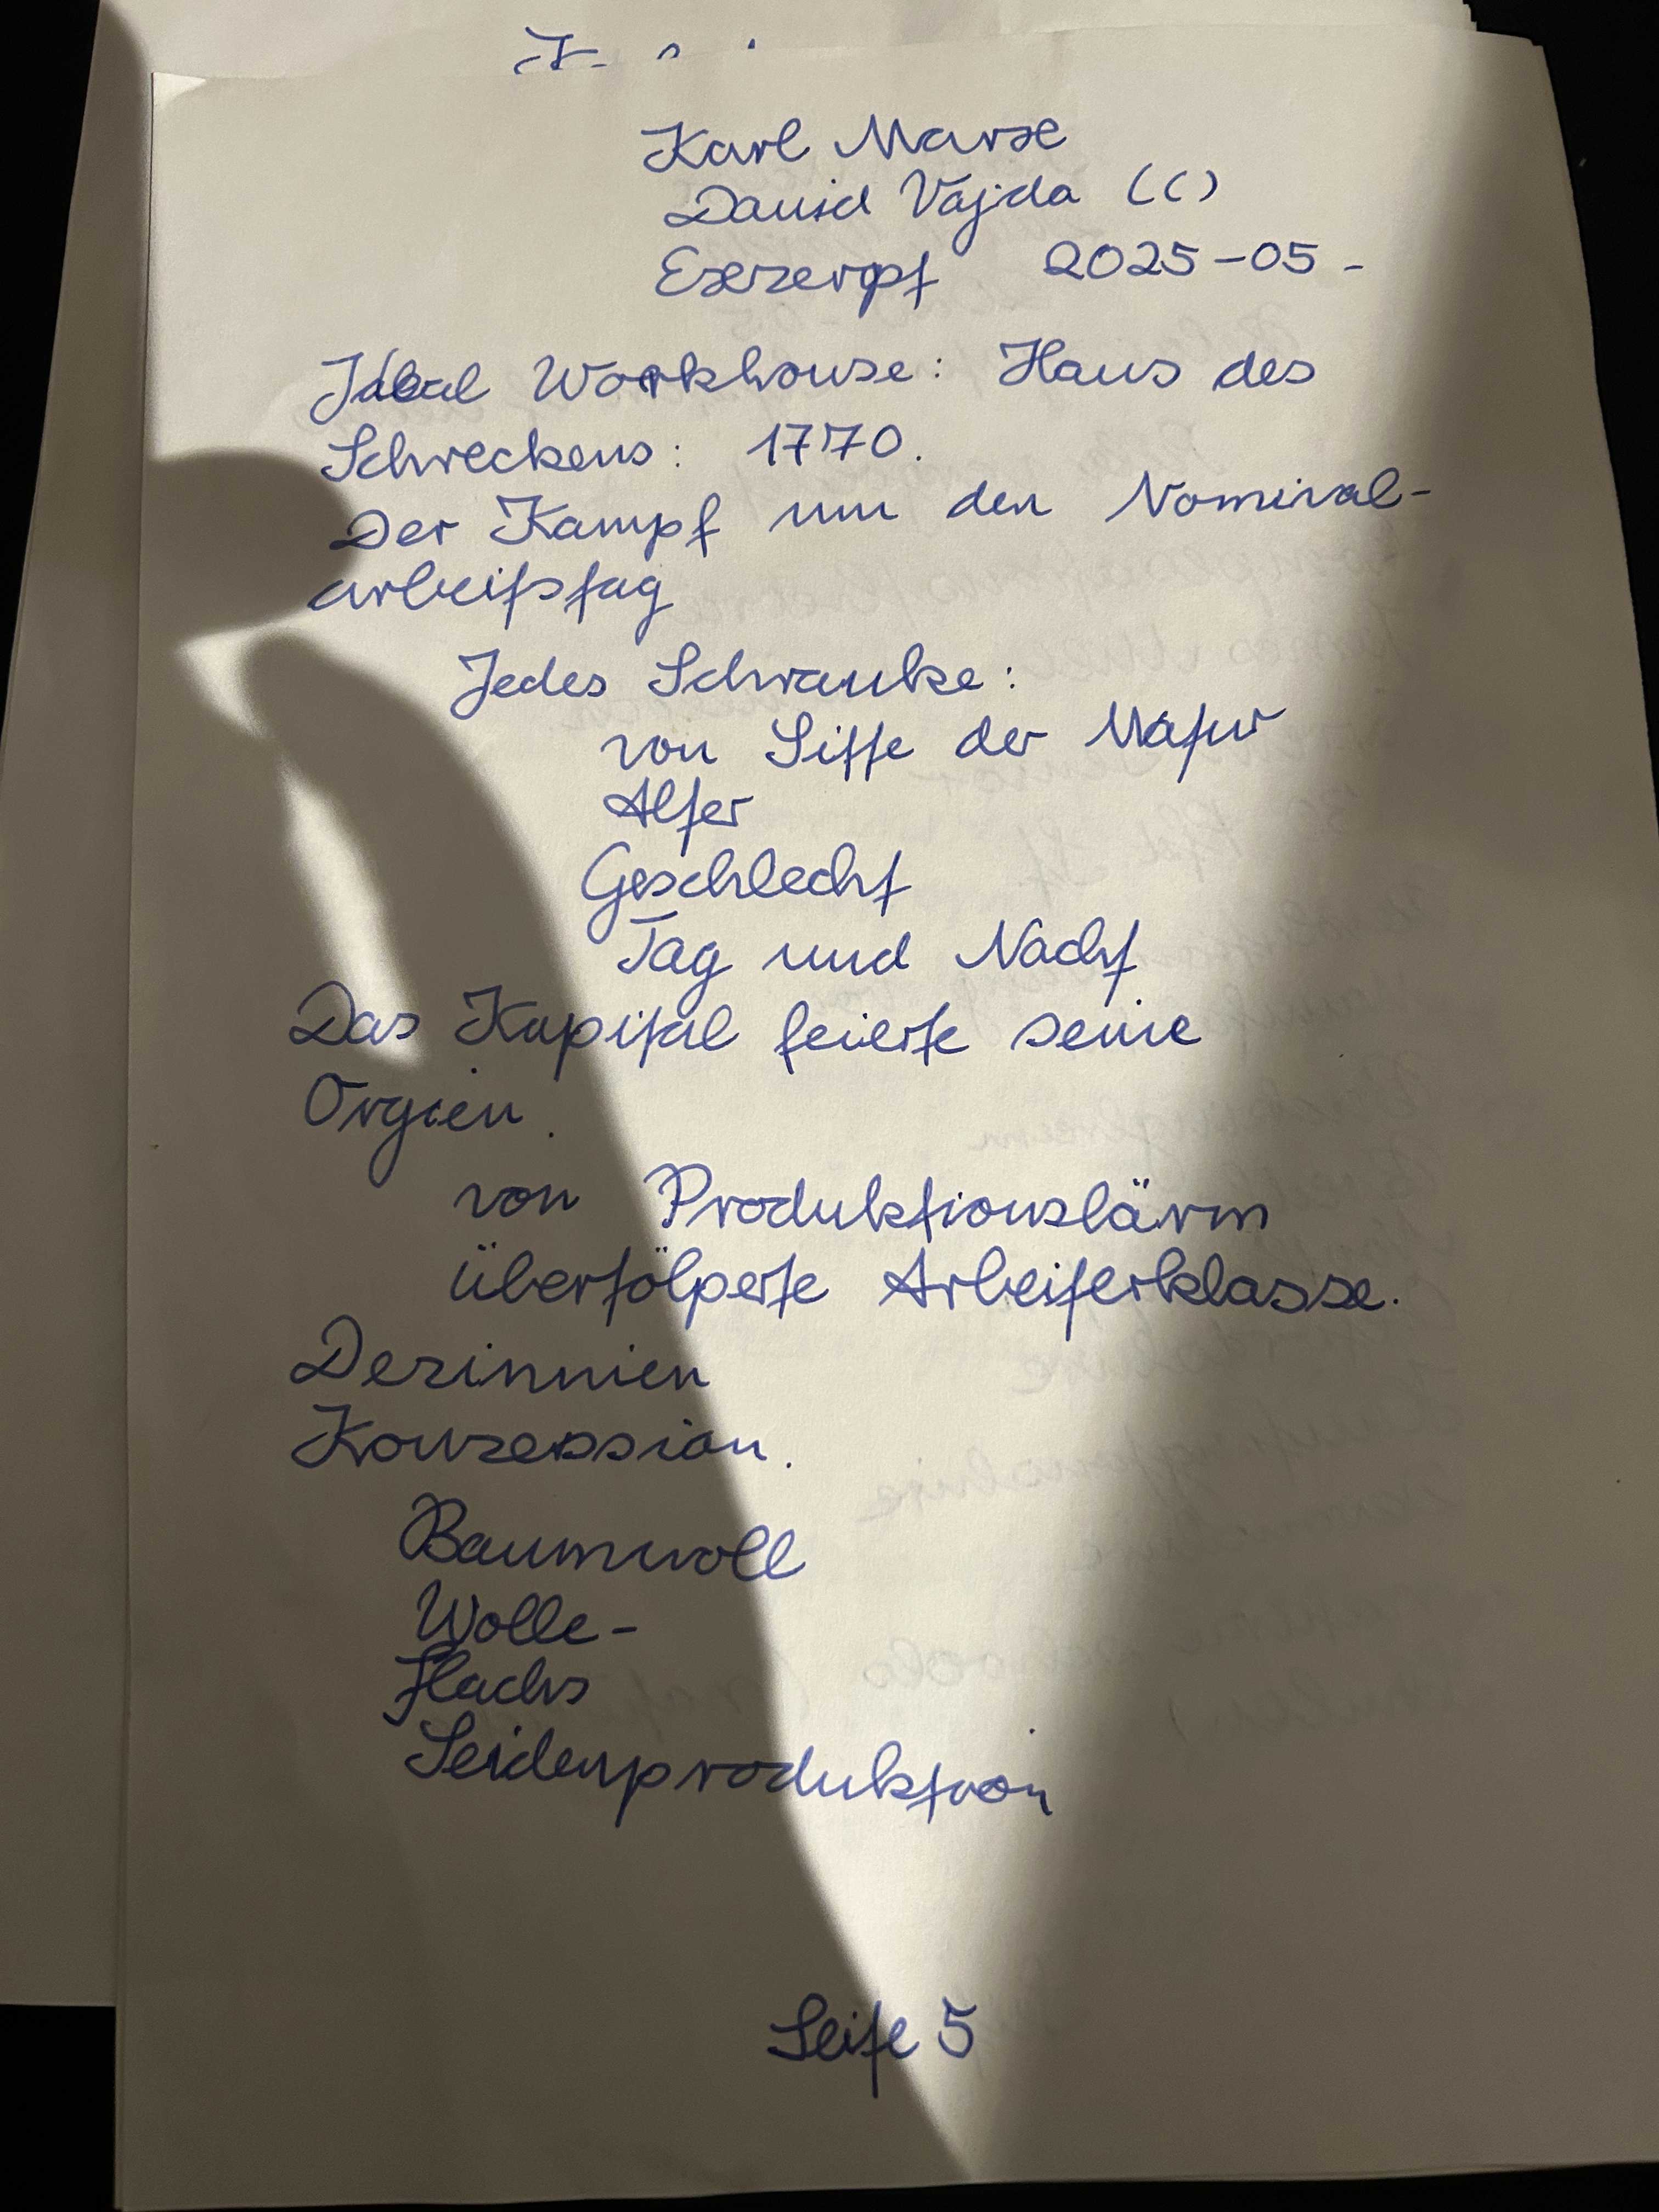 Karl Marx
David Vajda (C)
Exzerpt 2025-05-
Ideal Workhouse: Haus des
Schreckens: 1770.
Der Kampf um den Nominal-
arbeitstag
Jedes Schranke:
von Sitte der Natur
Alter
Geschlecht
Tag und Nacht
Das Kapital feierte seine
Orgien.
von Produktionslärm
übertölperte Arbeiterklasse.
Dezinnien
Konzession.
Baumwoll
Wolle-
Flachs
Seidenproduktion
Seite 5